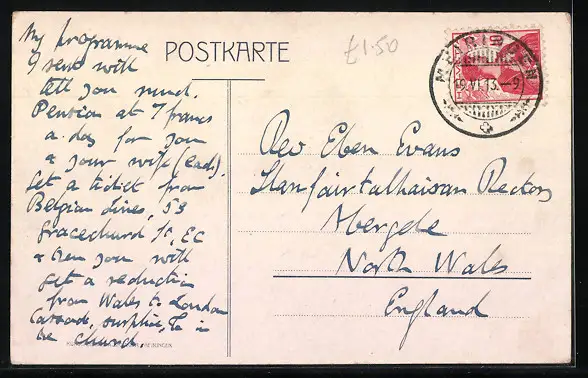 My programme
I send will
tell you much.
Pension at 7 francs
a day for you
& your wife (each).
Get a ticket from
Belgian Lines, 53
Gracechurch St, EC
& then you will
get a reduction
from Wales to London
Cassock, surplice, &c in
the church.
POSTKARTE
£1.50
MEIRINGEN
VI.13.-9
Rev Eben Evans
Llanfairtalhaiarn Rectory
Abergele
North Wales
England